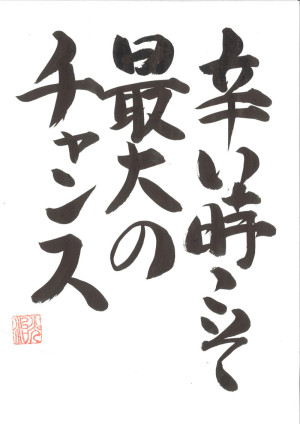 辛い時こそ
最大の
チャンス